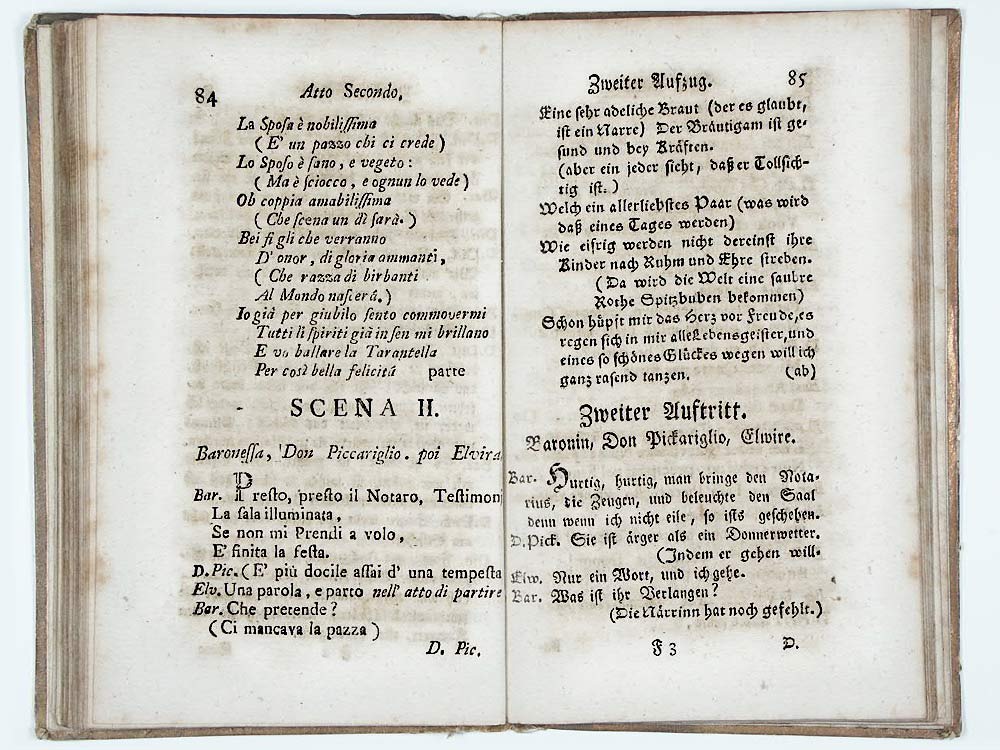 84
Atto Secondo,
La Spoſa è nobiliſſima
( E' un pazzo chi ci crede )
Lo Spoſo è ſano, e vegeto :
( Ma è ſciocco, e ognun lo vede )
Oh coppia amabiliſſima
( Che ſcena un dì ſarà. )
Bei figli che verranno
D' onor, di gloria ammanti,
( Che razza di birbanti
Al Mondo naſcerà. )
Io già per giubilo ſento commovermi
Tutti li ſpiriti già in ſen mi brillano
E vo ballare la Tarantella
Per così bella felicità parte
SCENA II.
Baroneſſa, Don Piccariglio. poi Elvira
Bar. Presto, presto il Notaro, Testimon
La ſala illuminata,
Se non mi Prendi a volo,
E' finita la feſta.
D. Pic. ( E' più docile aſſai d' una tempeſta
Elv. Una parola, e parto nell' atto di partire
Bar. Che pretende ?
( Ci mancava la pazza )
D. Pic.
Zweiter Aufzug.
85
Eine ſehr adeliche Braut (der es glaubt,
iſt ein Narre) Der Bräutigam iſt ge-
ſund und bey Kräften.
(aber ein jeder ſieht, daß er Tollſich-
tig iſt.)
Welch ein allerliebſtes Paar (was wird
daß eines Tages werden)
Wie eifrig werden nicht dereinſt ihre
Kinder nach Ruhm und Ehre ſtreben.
(Da wird die Welt eine ſaubre
Rothe Spitzbuben bekommen)
Schon hüpft mir das Herz vor Freude, es
regen ſich in mir alle Lebensgeiſter, und
eines ſo ſchönes Glückes wegen will ich
ganz raſend tanzen. (ab)
Zweiter Auftritt.
Baronin, Don Pickariglio, Elwire.
Bar. Hurtig, hurtig, man bringe den Nota-
rius, die Zeugen, und beleuchte den Saal
denn wenn ich nicht eile, ſo iſts geſchehen.
D. Pick. Sie iſt ärger als ein Donnerwetter.
(Indem er gehen will-
Elw. Nur ein Wort, und ich gehe.
Bar. Was iſt ihr Verlangen?
(Die Närrinn hat noch gefehlt.)
F 3
D.